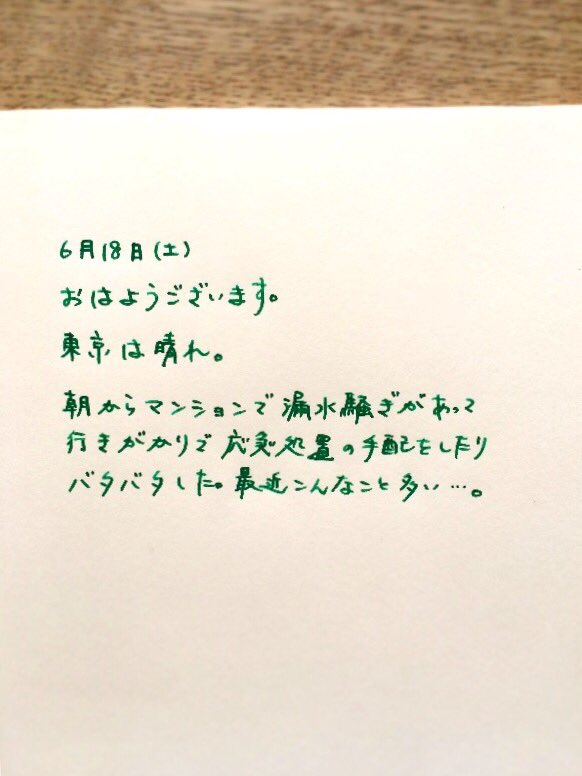 6月18日(土)
おはようございます。
東京は晴れ。
朝からマンションで漏水騒ぎがあって
行きがかりで応急処置の手配をしたり
バタバタした。最近こんなこと多い…。